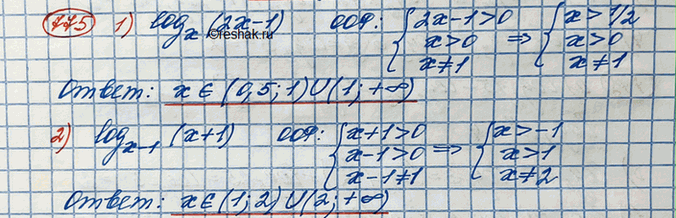 775 1) log_x (2x-1) ООФ: { 2x-1>0 ⇒ { x>1/2
x>0 x>0
x≠1 x≠1
©reshak.ru
Ответ: x ∈ (0,5; 1) ∪ (1; +∞)
2) log_{x-1} (x+1) ООФ: { x+1>0 ⇒ { x>-1
x-1>0 x>1
x-1≠1 x≠2
Ответ: x ∈ (1; 2) ∪ (2; +∞)